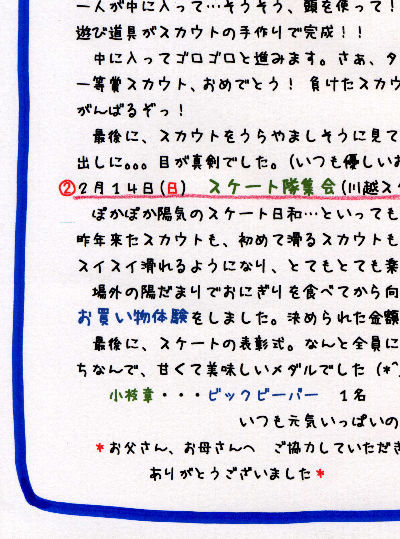 一人が中に入って…そうそう、頭を使って!
遊び道具がスカウトの手作りで完成!!
中に入ってゴロゴロと進みます。さぁ、タ
一等賞スカウト、おめでとう! 負けたスカウ
がんばるぞっ!
最後に、スカウトをうらやましそうに見て
出しに。。。目が真剣でした。(いつも優しいお
②2月14日(日) スケート隊集会(川越ス
ぽかぽか陽気のスケート日和…といっても
昨年来たスカウトも、初めて滑るスカウトも
スイスイ滑れるようになり、とてもとても楽
場外の陽だまりでおにぎりを食べてから向
お買い物体験をしました。決められた金額
最後に、スケートの表彰式。なんと全員に
ちなんで、甘くて美味しいメダルでした(*^
小枝章・・・ビックビーバー 1名
いつも元気いっぱいの
*お父さん、お母さんへ ご協力していただき
ありがとうございました*